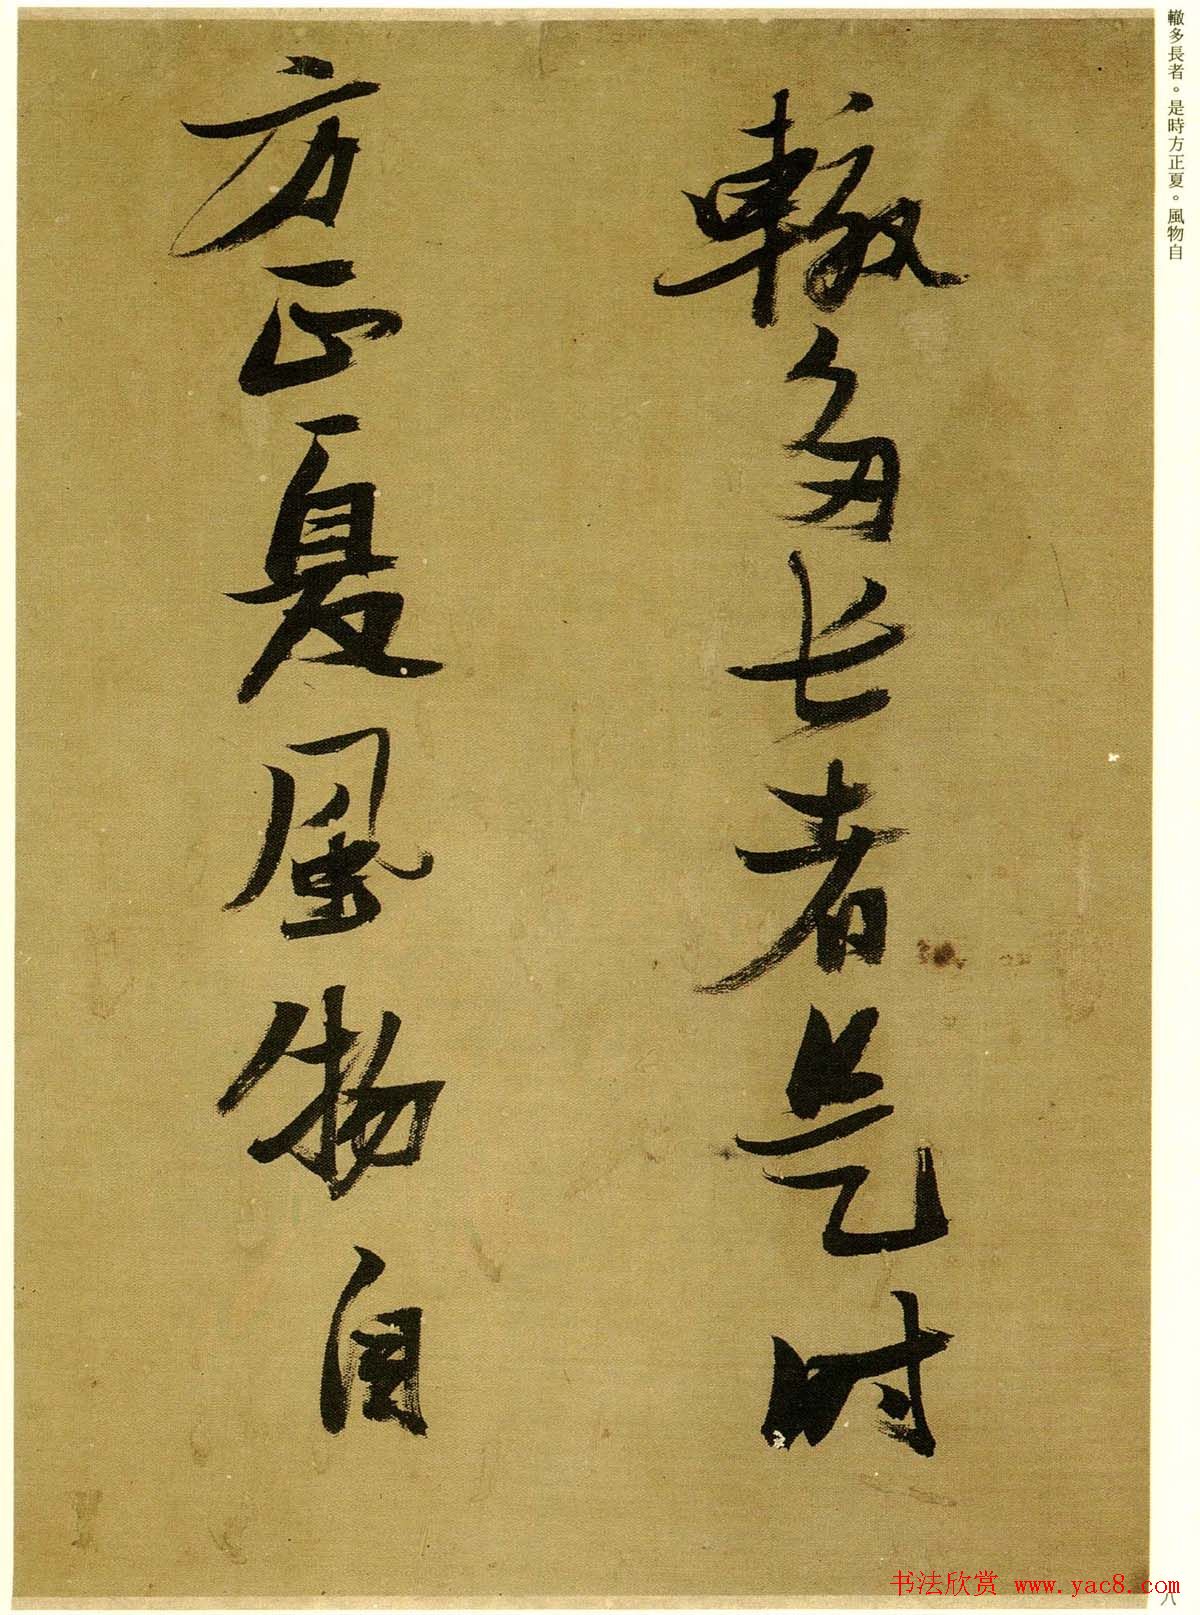 轍多長者。是時方正夏。風物自
轍多长者是时
方正夏風物自
八
书法欣赏 www.yac8.com